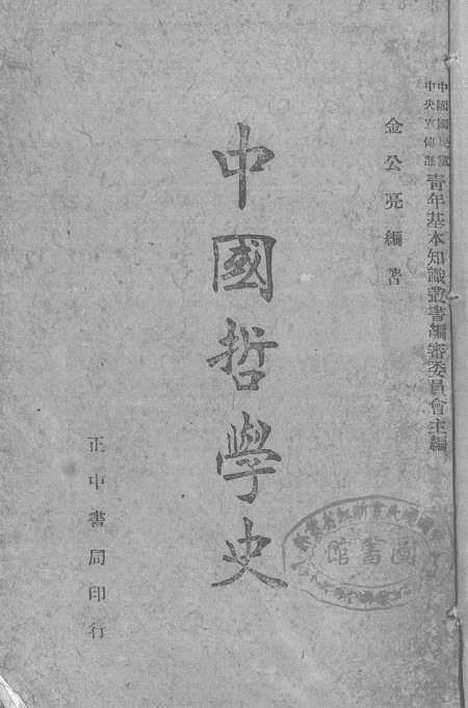 中國國民黨
中央宣傳部
青年基本知識叢書編審委員會主編
金公亮編著
中國哲學史
正中書局印行
圖書館